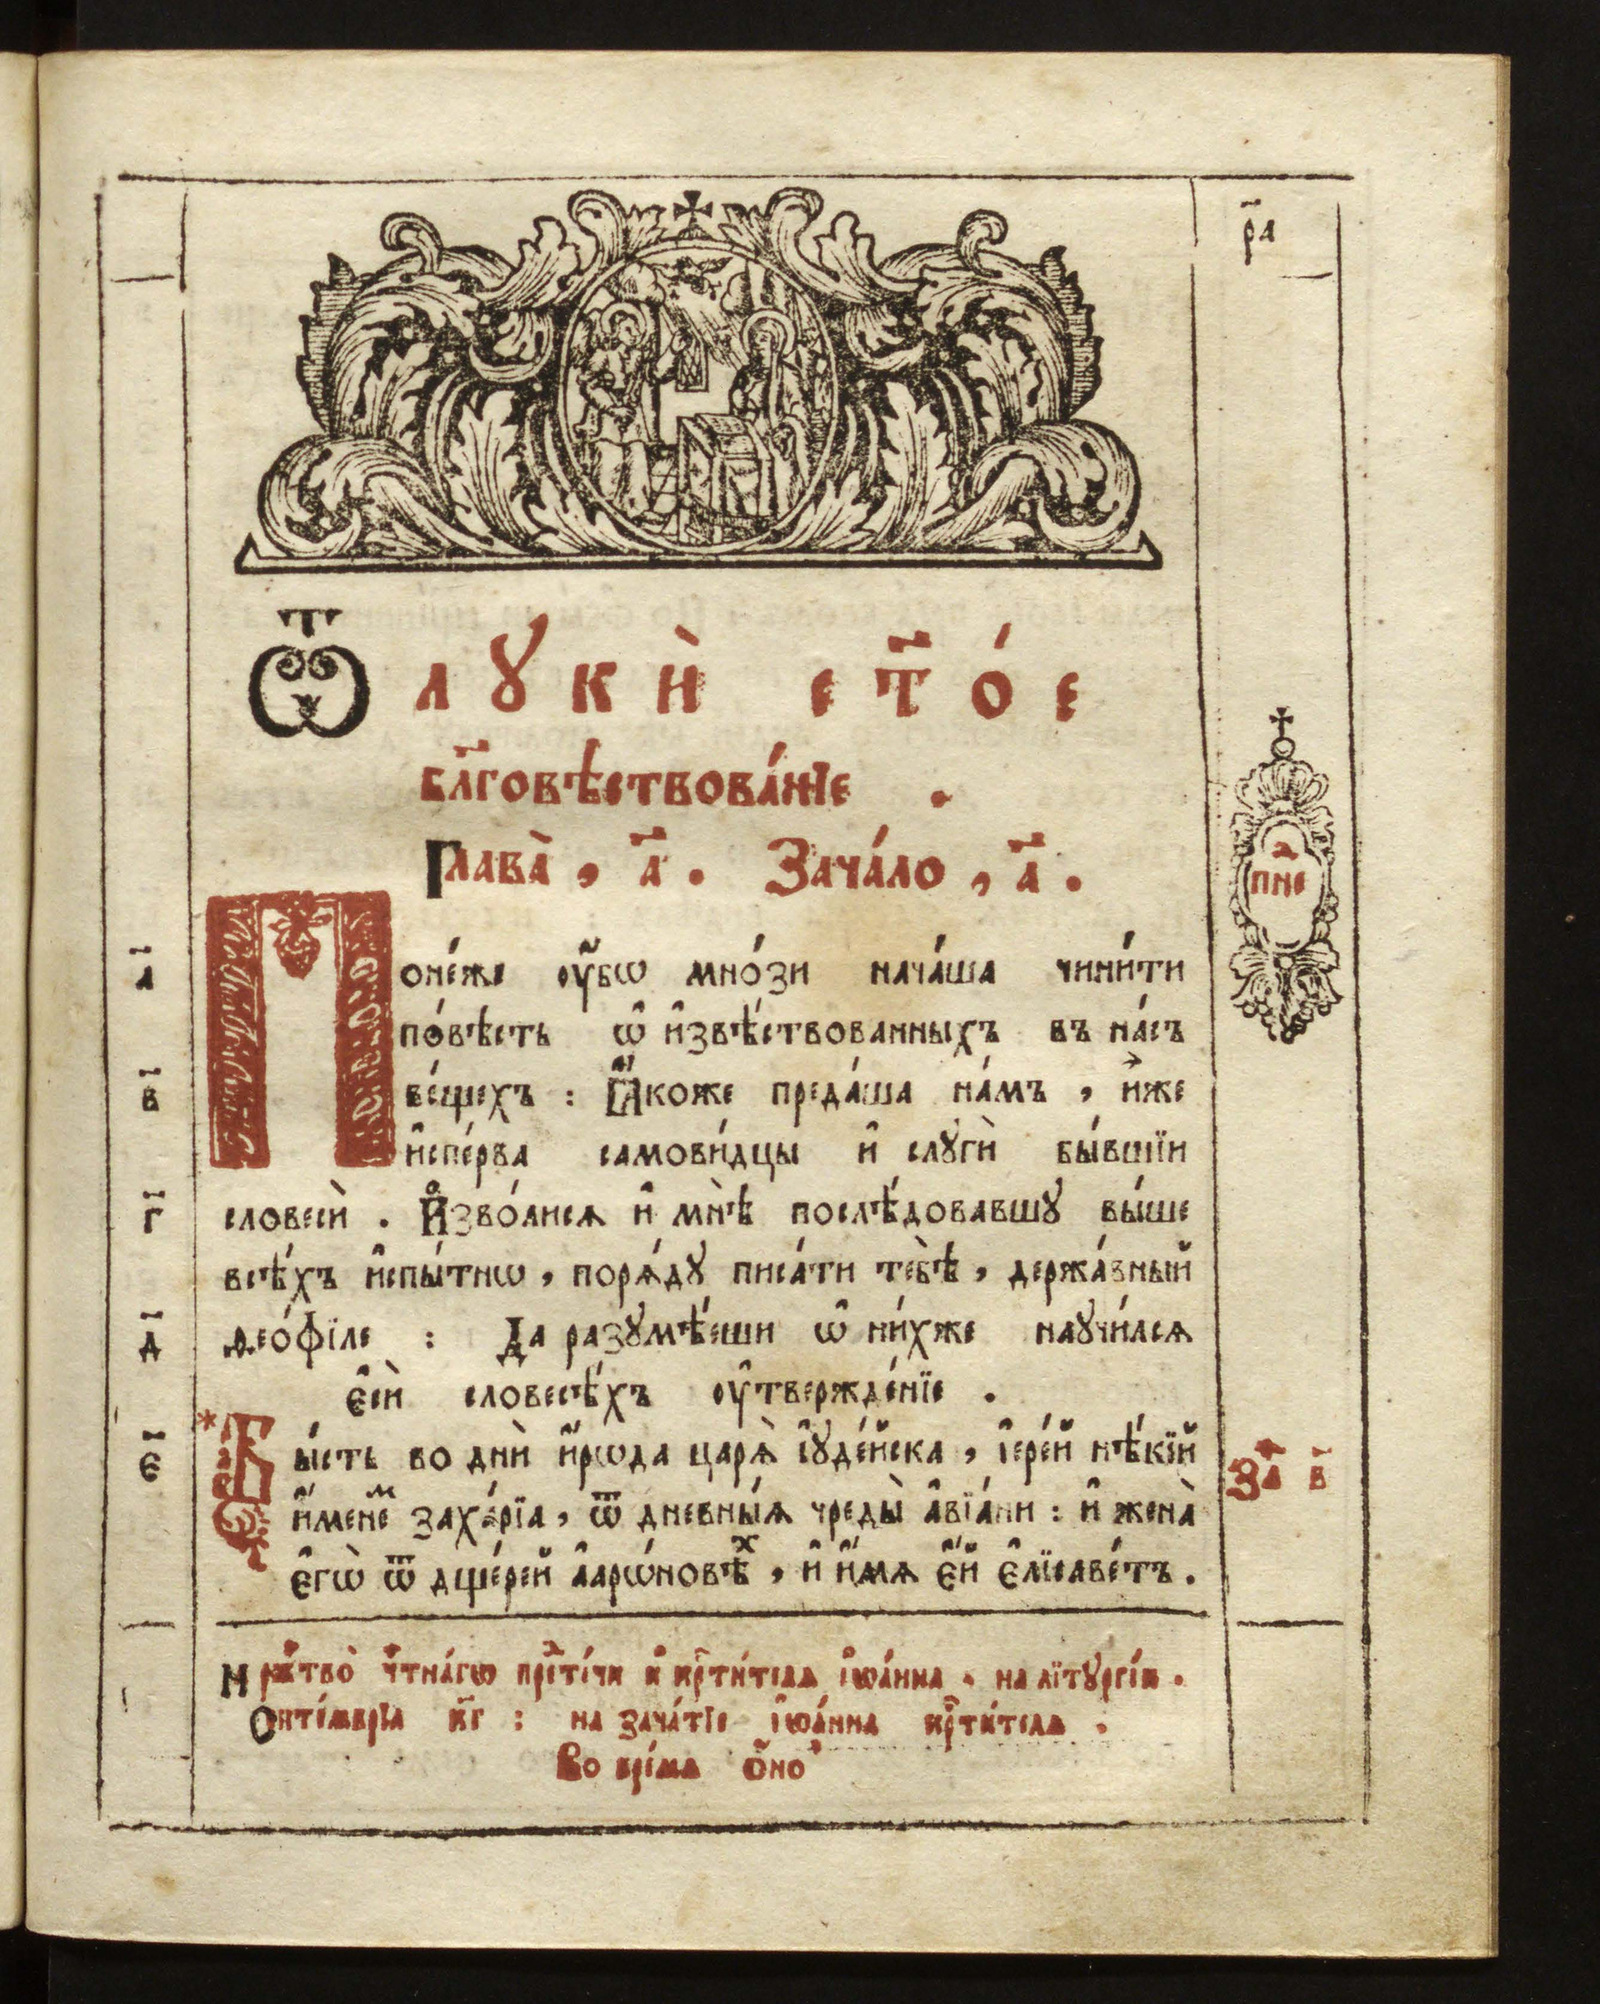 р҃а
Ѿ лꙋкѝ ст҃о́е
бл҃говѣствова́нїе .
Глава̀ , а҃ . Зача́ло , а҃ .
пне
а҃ Поне́же ᲂу҆́бѡ мно́зи нача́ша чини́ти
по́вѣсть ѡ҆ и҆звѣ́ствованныхъ въ на́съ
в҃ ве́щехъ : Ꙗ҆́коже преда́ша на́мъ , и҆̀же
и҆спе́рва самови́дцы и҆ слꙋгѝ бы́вшїи
г҃ словесѝ . И҆зво́лисѧ и҆ мнѣ̀ послѣ́довавшꙋ вы́ше
всѣ́хъ и҆спы́тнѡ , порѧ́дꙋ писа́ти тебѣ̀ , держа́вный
д҃ ѳео́філе : Да разꙋмѣ́еши ѡ҆ ни́хже научи́лсѧ
є҆сѝ словесѣ́хъ ᲂу҆твержде́нїе .
є҃ * Бы́сть во днѝ и҆́рѡда царѧ̀ і҆ꙋде́йска , і҆ере́й нѣ́кїй
за҃ в҃
и҆́менеⷨ заха́рїа , ѿ дневны́ѧ чреды̀ а҆вїа́ни : и҆ жена̀
є҆гѡ̀ ѿ дще́рей а҆арѡ́новѣⷯ , и҆ и҆́мѧ є҆́й є҆лїсаве́тъ .
Н рⷤтво̀ чⷭ҇тна́гѡ прⷣте́чи и҆ крⷭ҇ти́телѧ і҆ѡа́нна . на лїтꙋргі́и .
Септе́мврїа кг҃ : на зача́тїе і҆ѡа́нна крⷭ҇ти́телѧ .
Во вре́мѧ ѻ҆́но